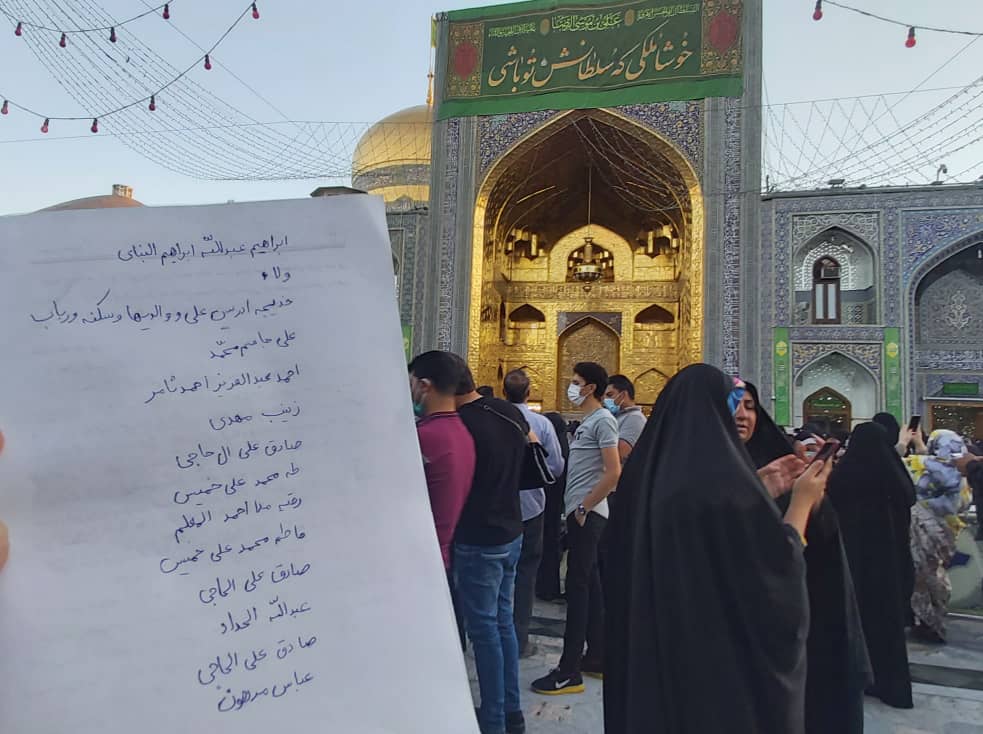 السلطان ابوالحسن
علی بن موسی الرضا
خوشا ملکی که سلطانش تو باشی
ابراهيم عبدالله ابراهيم البناي
ولاء
خديجه ادريس علي و والديها وسكنه ورباب
علي جاسم محمد
احمد عبدالعزيز احمد ثامر
زينب مهدي
صادق علي ال حاجي
طه محمد علي خميس
رقيه ملا احمد المعلم
فاطمه محمد علي خميس
صادق علي الحاجي
عبدالله الحداد
صادق علي الحاجي
عباس مرهون